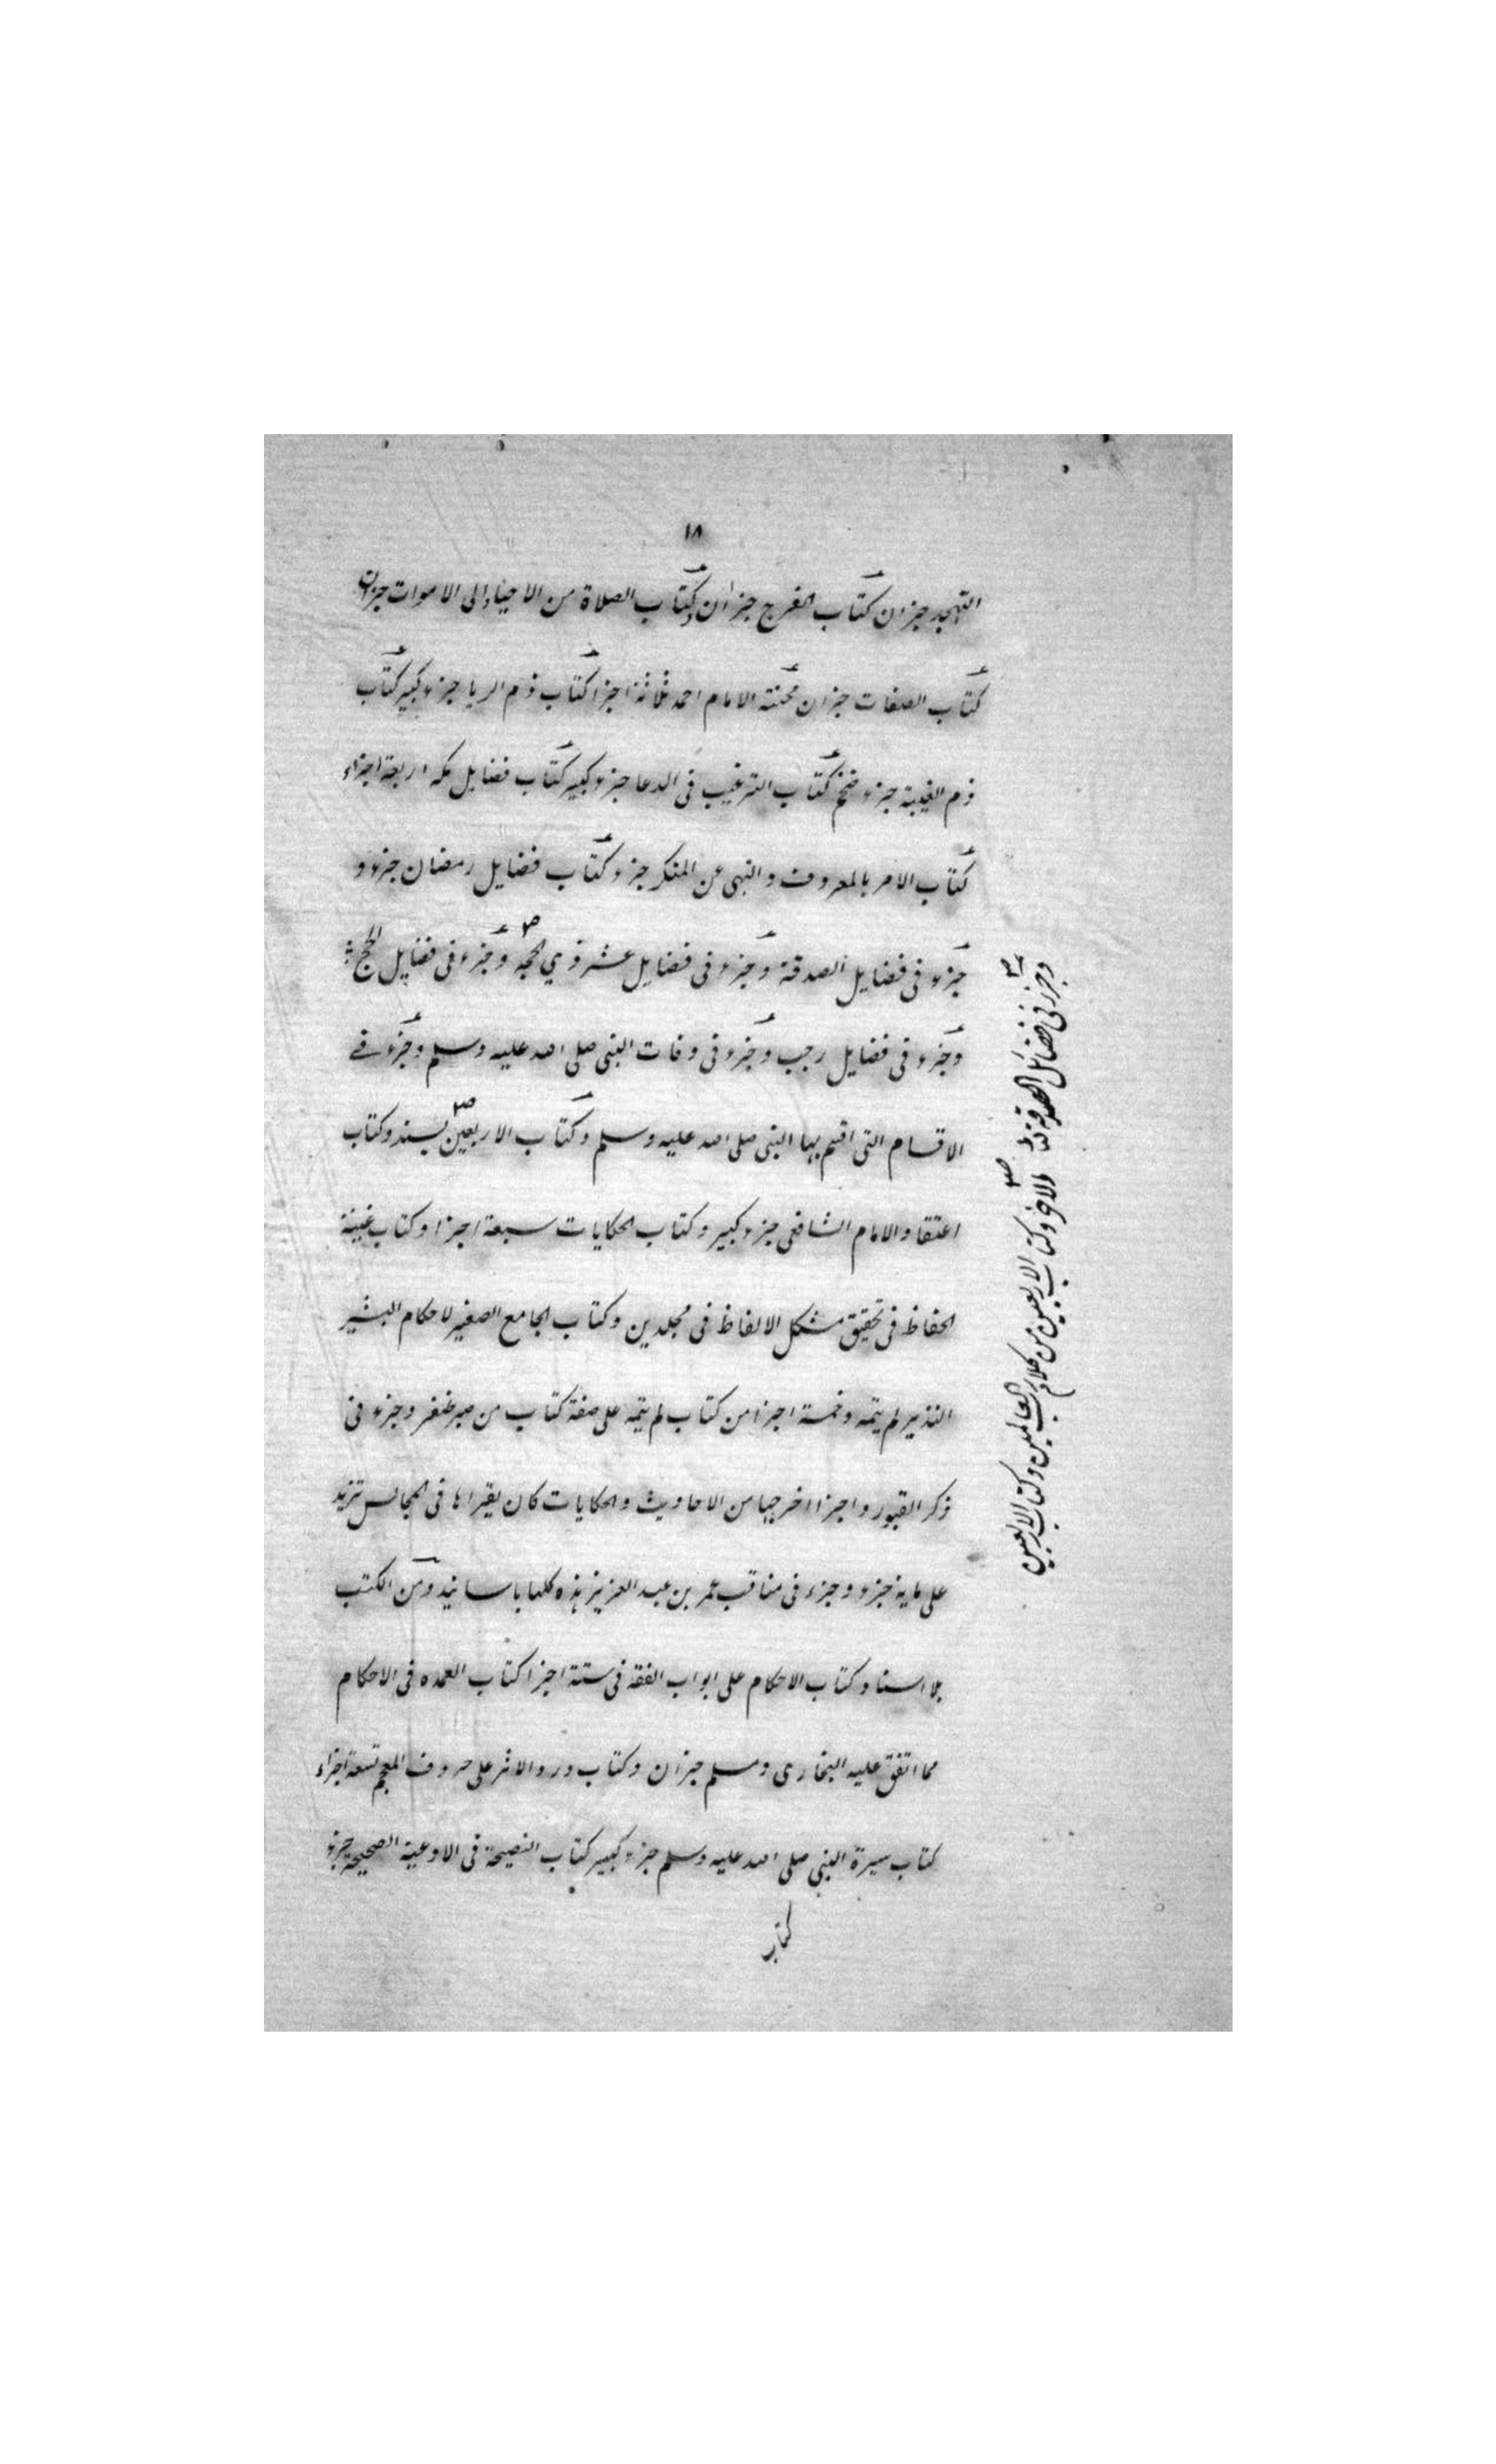 ١٨
التهجد جزان كتاب الفرج جزان وكتاب الصلاة من الاحياء الى الاموات جزان
كتاب الصفات جزان محنة الامام احمد ثلاثة اجزا كتاب ذم الريا جزء كبير كتاب
ذم الغيبة جزء ضخم كتاب الترغيب فى الدعا جزء كبير كتاب فضايل مكه اربعة اجزاء
كتاب الامر بالمعروف والنهى عن المنكر جزء كتاب فضايل رمضان جزء و
جزء فى فضايل الصدقة وجزء فى فضايل عشر ذي الحجه وجزء فى فضايل الحج
وجزء فى فضايل رجب وجزء فى وفات النبى صلى الله عليه وسلم وجزء فے
الاقسام التى اقسم بها النبى صلى الله عليه وسلم وكتاب الاربعين بسند وكتاب
اعتقاد الامام الشافعى جزء كبير وكتاب الحكايات سبعة اجزا وكتاب غنية
الحفاظ فى تحقيق مشكل الالفاظ فى مجلدين وكتاب الجامع الصغير لاحكام البشير
النذير لم يتمه وخمسة اجزا من كتاب لم يتمه على صفة كتاب من صبر ظفر وجزء فى
ذكر القبور واجزا اخرجها من الاحاديث والحكايات كان يقراها فى المجالس تزيد
على ماية جزء وجزء فى مناقب عمر بن عبد العزيز هذه كلها باسانيد ومن الكتب
بلا اسناد كتاب الاحكام على ابواب الفقه فى ستة اجزا كتاب العمده فى الاحكام
مما اتفق عليه البخارى ومسلم جزان وكتاب درر الاثر على حروف المعجم تسعة اجزاء
كتاب سيرة النبى صلى الله عليه وسلم جزء كبير كتاب النصيحة فى الادعية الصحيحة جزء
كتاب
وجزء فى فضائل الصدقة وكتاب الاربعين من كلام رب العالمين وكتاب الاربعين